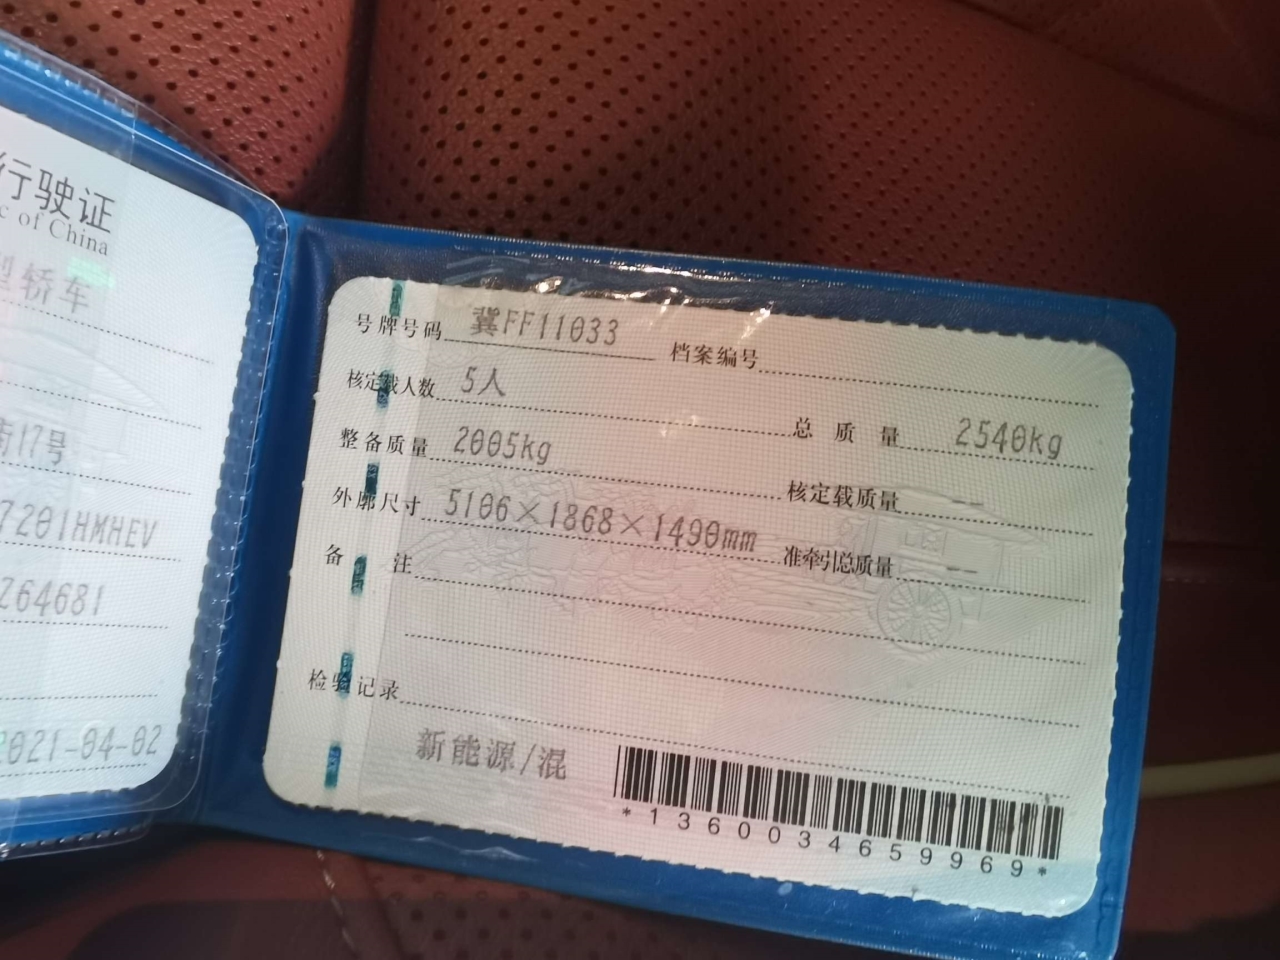 行驶证
c of China
轿车
街17号
7201HMHEV
264681
2021-04-02
号牌号码 冀FF11033 档案编号
核定载人数 5人 总质量 2540kg
整备质量 2005kg 核定载质量 --
外廓尺寸 5106×1868×1490mm 准牵引总质量 --
备注
检验记录
新能源/混
*1360034659969*